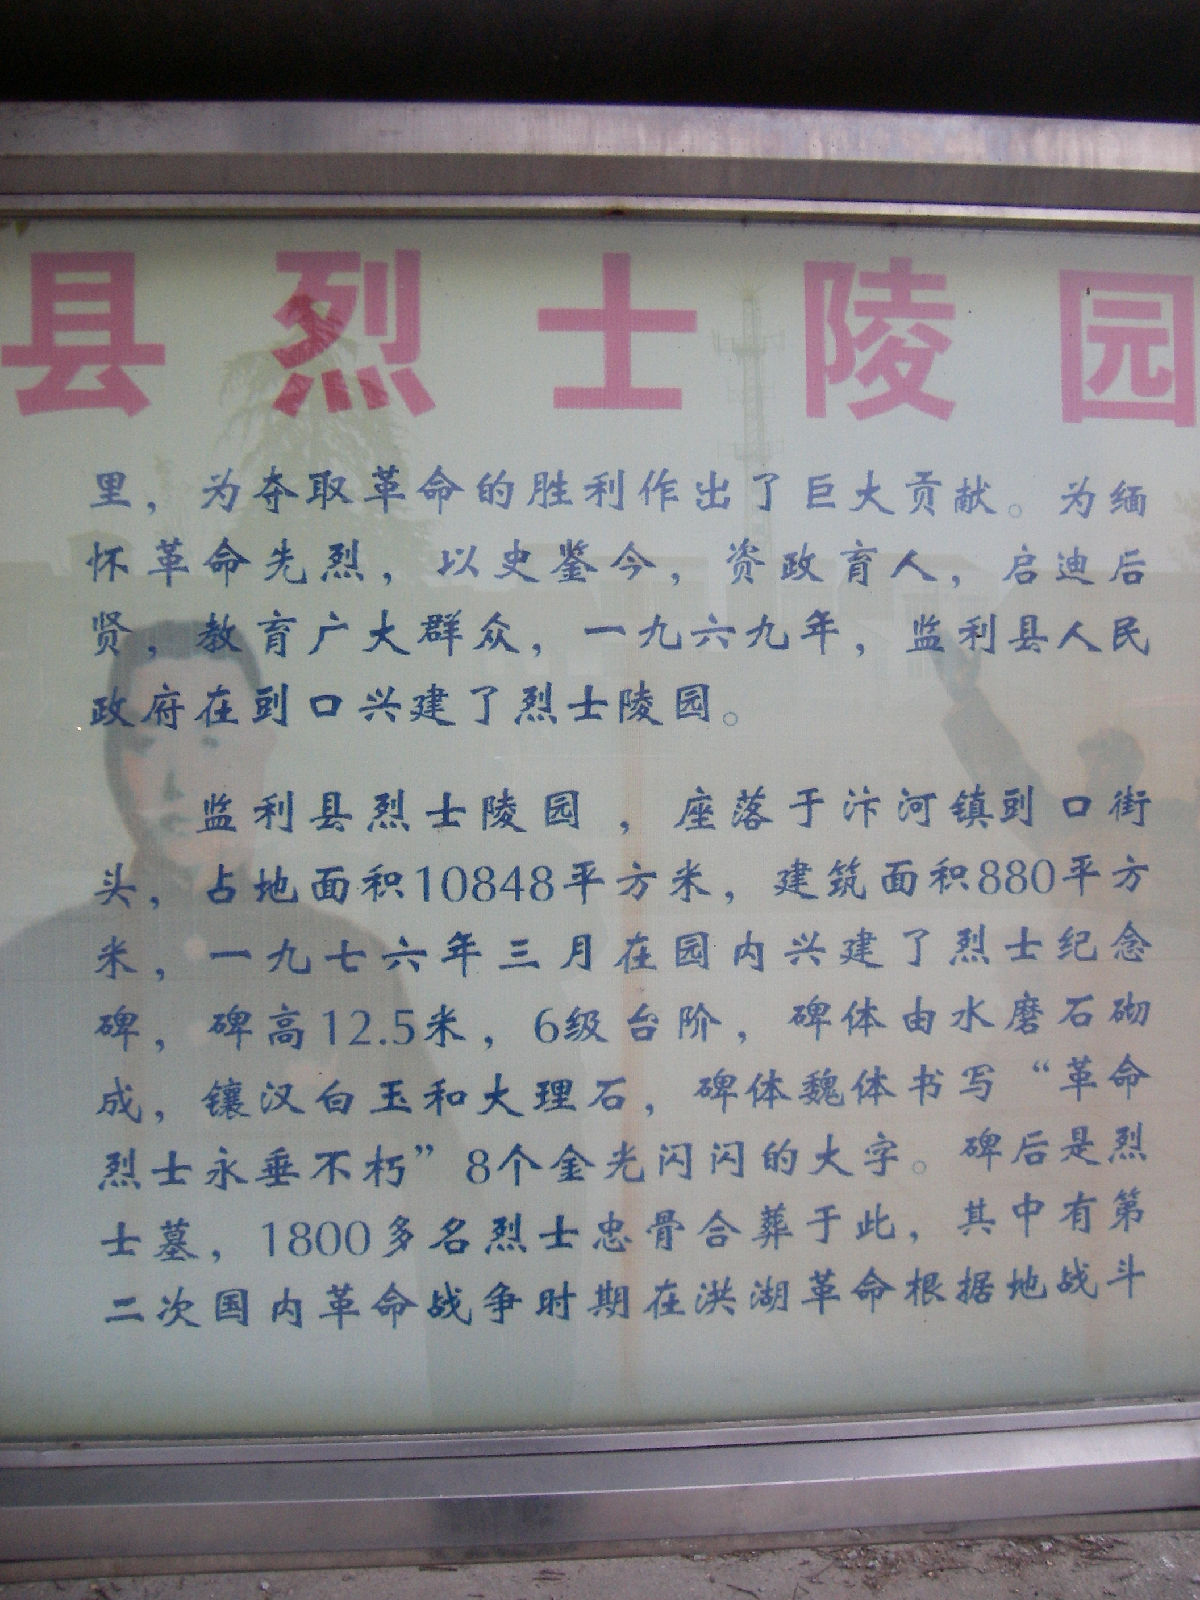 县烈士陵园
里，为夺取革命的胜利作出了巨大贡献。为缅
怀革命先烈，以史鉴今，资政育人，启迪后
贤，教育广大群众，一九六九年，监利县人民
政府在剅口兴建了烈士陵园。
监利县烈士陵园，座落于汴河镇剅口街
头，占地面积10848平方米，建筑面积880平方
米，一九七六年三月在园内兴建了烈士纪念
碑，碑高12.5米，6级台阶，碑体由水磨石砌
成，镶汉白玉和大理石，碑体魏体书写“革命
烈士永垂不朽”8个金光闪闪的大字。碑后是烈
士墓，1800多名烈士忠骨合葬于此，其中有第
二次国内革命战争时期在洪湖革命根据地战斗